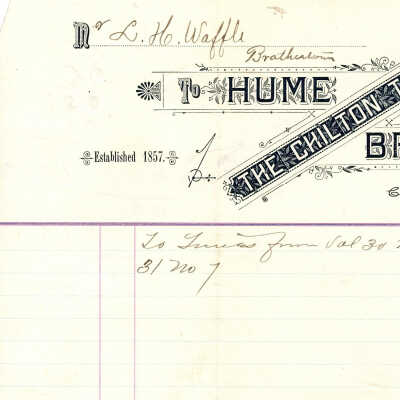 Mr L. H. Waffle
Brothertown
To HUME
THE CHILTON T
Established 1857.
$.
To Times from Vol 30 N
31 No 7